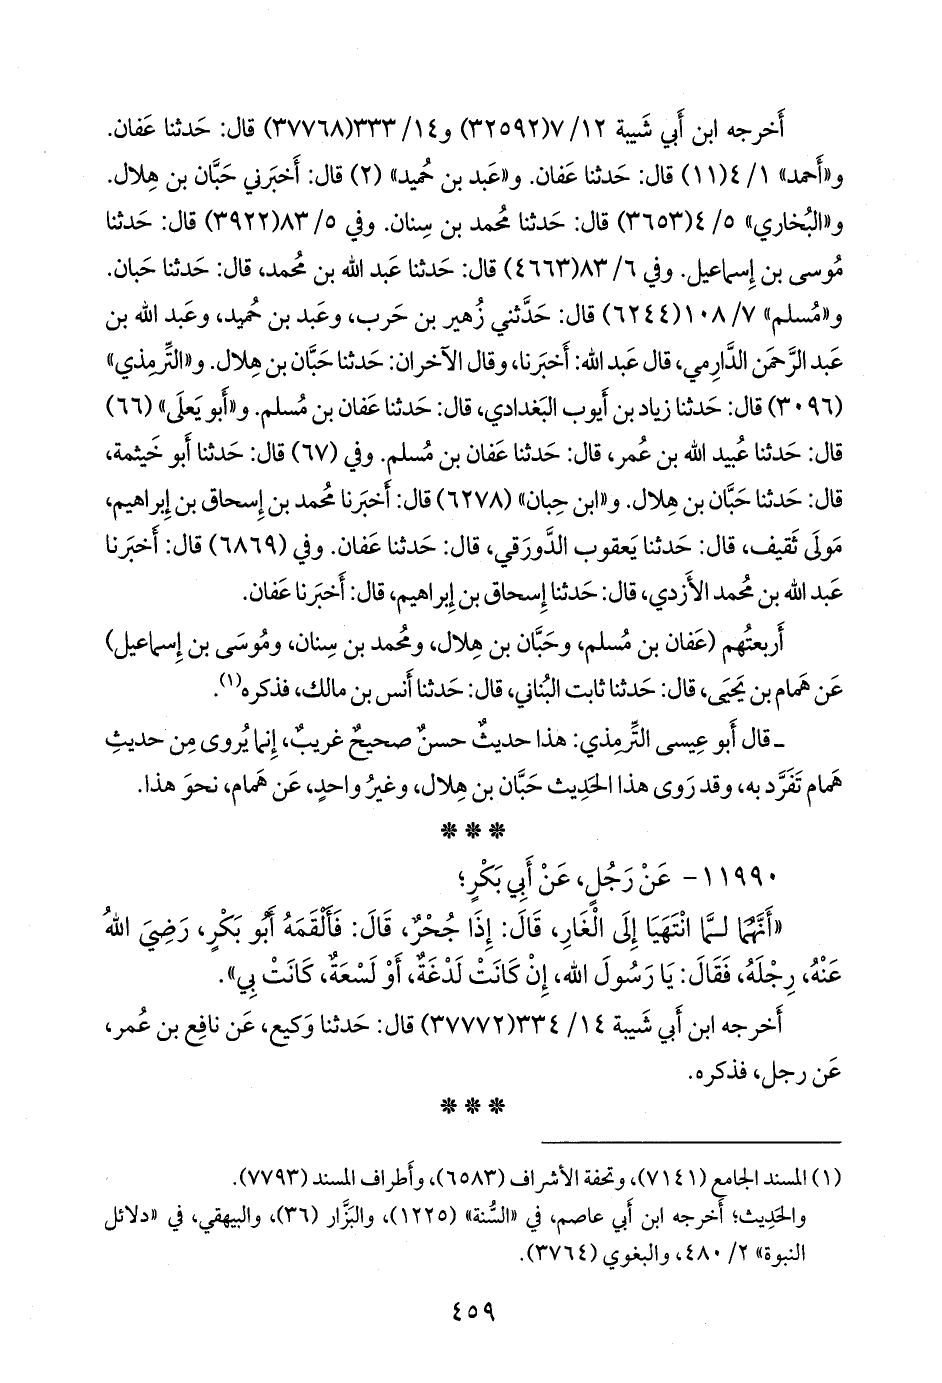 أَخرجه ابن أَبي شَيبة ١٢/ ٧(٣٢٥٩٢) و١٤/ ٣٣٣(٣٧٧٦٨) قال: حَدثنا عَفان.
و«أَحمد» ١/ ٤(١١) قال: حَدثنا عَفان. و«عَبد بن حُميد» (٢) قال: أَخبَرني حَبَّان بن هِلال.
و«البُخاري» ٥/ ٤(٣٦٥٣) قال: حَدثنا مُحمد بن سِنان. وفي ٥/ ٨٣(٣٩٢٢) قال: حَدثنا
مُوسى بن إِسماعيل. وفي ٦/ ٨٣(٤٦٦٣) قال: حَدثنا عَبد الله بن مُحمد، قال: حَدثنا حَبان.
و«مُسلم» ٧/ ١٠٨(٦٢٤٤) قال: حَدَّثني زُهير بن حَرب، وعَبد بن حُميد، وعَبد الله بن
عَبد الرَّحمَن الدَّارِمي، قال عَبد الله: أَخبَرنا، وقال الآخران: حَدثنا حَبَّان بن هِلال. و«التِّرمِذي»
(٣٠٩٦) قال: حَدثنا زياد بن أَيوب البَغدادي، قال: حَدثنا عَفان بن مُسلم. و«أَبو يَعلَى» (٦٦)
قال: حَدثنا عُبيد الله بن عُمر، قال: حَدثنا عَفان بن مُسلم. وفي (٦٧) قال: حَدثنا أَبو خَيثمة،
قال: حَدثنا حَبَّان بن هِلال. و«ابن حِبان» (٦٢٧٨) قال: أَخبَرنا مُحمد بن إِسحاق بن إِبراهيم،
مَولَى ثَقيف، قال: حَدثنا يَعقوب الدَّورَقي، قال: حَدثنا عَفان. وفي (٦٨٦٩) قال: أَخبَرنا
عَبد الله بن مُحمد الأَزدي، قال: حَدثنا إِسحاق بن إِبراهيم، قال: أَخبَرنا عَفان.
أَربعتُهم (عَفان بن مُسلم، وحَبَّان بن هِلال، ومُحمد بن سِنان، ومُوسَى بن إِسماعيل)
عَن هَمام بن يَحيَى، قال: حَدثنا ثابت البُناني، قال: حَدثنا أَنس بن مالك، فذكره(١).
ـ قال أَبو عِيسى التِّرمِذي: هذا حديثٌ حسنٌ صحيحٌ غريبٌ، إِنما يُروى مِن حديثِ
هَمام تَفَرَّد به، وقد رَوى هذا الحَدِيث حَبَّان بن هِلال، وغيرُ واحدٍ، عَن هَمام، نحوَ هذا.
***
١١٩٩٠- عَنْ رَجُلٍ، عَنْ أَبِي بَكْرٍ؛
«أَنَّهُمَا لَمَّا انْتَهَيَا إِلَى الْغَارِ، قَالَ: إِذَا جُحْرٌ، قَالَ: فَأَلْقَمَهُ أَبُو بَكْرٍ، رَضِيَ اللهُ
عَنْهُ، رِجْلَهُ، فَقَالَ: يَا رَسُولَ الله، إِنْ كَانَتْ لَدْغَةٌ، أَوْ لَسْعَةٌ، كَانَتْ بِي».
أَخرجه ابن أَبي شَيبة ١٤/ ٣٣٤(٣٧٧٧٢) قال: حَدثنا وَكيع، عَن نافِع بن عُمر،
عَن رجل، فذكره.
***
(١) المسند الجامع (٧١٤١)، وتحفة الأشراف (٦٥٨٣)، وأَطراف المسند (٧٧٩٣).
والحَدِيث؛ أَخرجه ابن أَبي عاصم، في «السُّنة» (١٢٢٥)، والبَزَّار (٣٦)، والبيهقي، في «دلائل
النبوة» ٢/ ٤٨٠، والبغوي (٣٧٦٤).
٤٥٩